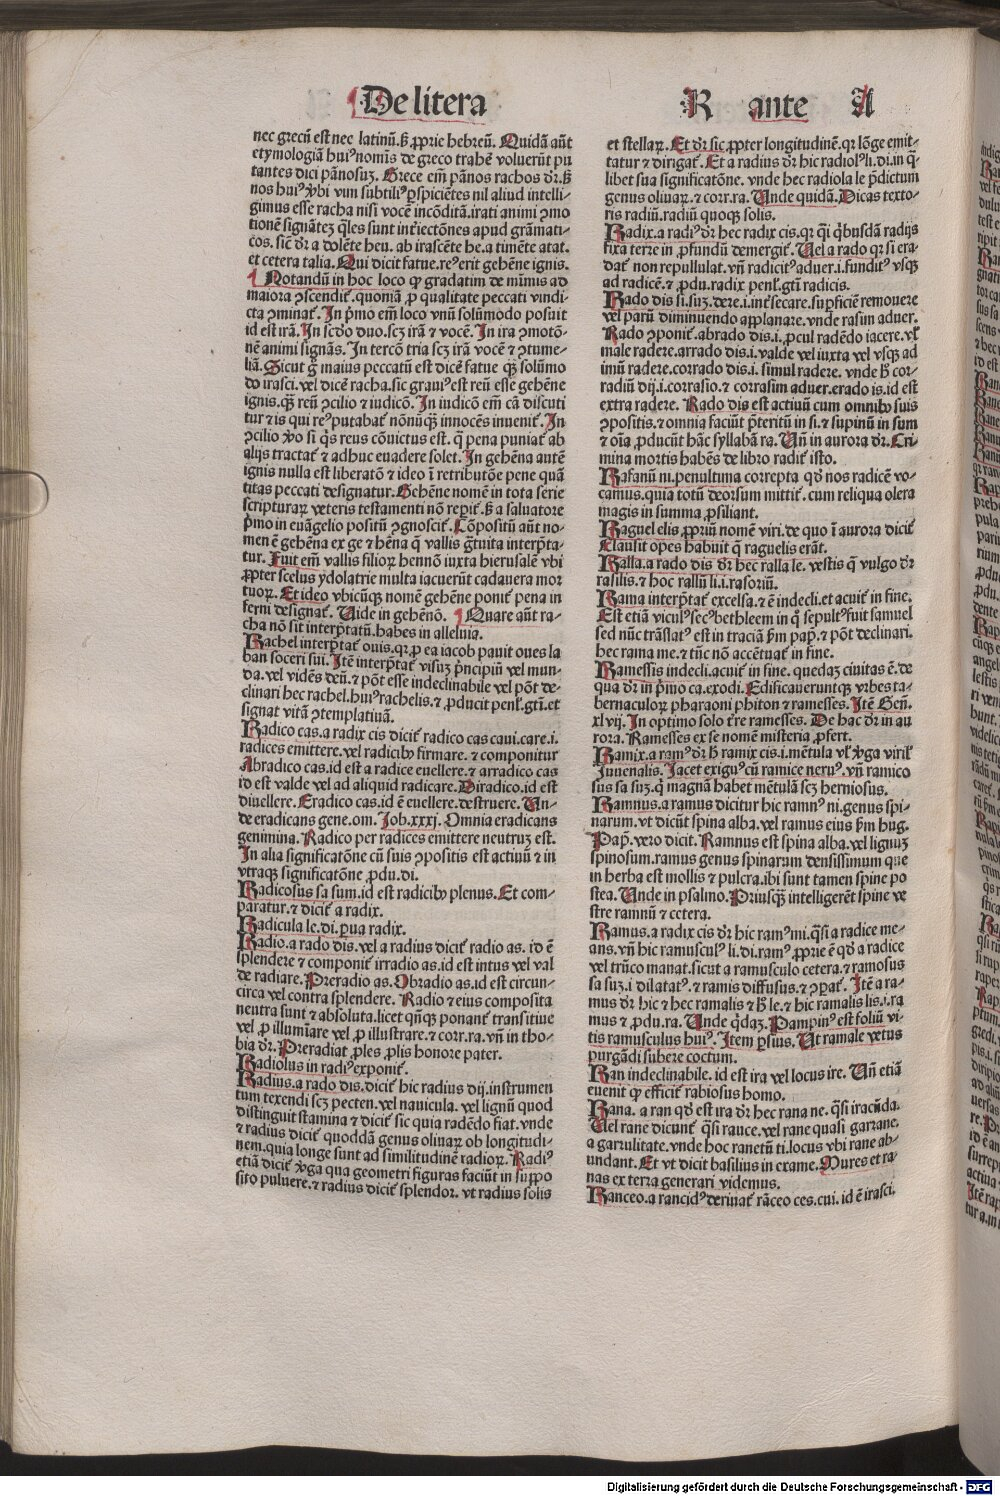 De litera
R ante A
nec grecū est nec latinū. sꝫ ꝓprie hebreū. Quidā aūt
etymologiā huiꝰ nomīs de greco trahē voluerūt pu
tantes dici pānosuꝫ. Grece em̄ pānos rachos dr̄. sꝫ
nos huiꝰ ꝟbi vim subtiliꝰ ꝑspiciētes nil aliud intelli-
gimus esse racha nisi vocē incōditā. irati animi ꝯmo
tionē signāteꝫ q̄les sunt int̄iectōnes apud grāmati-
cos. sic dr̄ a dolēte heu. ab irascēte he. a timēte atat.
et cetera talia. Qui dicit fatue. reꝰ erit gehēne ignis.
¶ Notandū in hoc loco ꝙ gradatim de mīmis ad
maiora ꝯscendit̄. quoniā ꝓ qualitate peccati vindi-
cta ꝯminat̄. In p̄mo em̄ loco vnū solūmodo posuit
id est irā. In scd̄o duo. scꝫ irā ⁊ vocē. In ira ꝯmotō-
nē animi signās. In tercō tria scꝫ irā vocē ⁊ ꝯtume-
liā. Sicut g̊ maius peccatū est dicē fatue qꝫ solūmo
do irasci. vel dicē racha. sic grauiꝰ est reū esse gehēne
ignis. qꝫ reū ꝯcilio ⁊ iudicō. In iudicō em̄ cā discuti
tur ⁊ is qui reꝰ putabat̄ nōnūqꝫ innocēs inuenit̄. In
ꝯcilio ꝟo si q̇s reus cōuictus est. q̄ pena puniat̄ ab
alijs tractat̄ ⁊ adhuc euadere solet. In gehēna autē
ignis nulla est liberatō ⁊ ideo ī retributōe pene quā
titas peccati designatur. Gehēne nomē in tota serie
scripturaꝝ veteris testamenti nō reꝑit̄. sꝫ a saluatore
p̄mo in euāgelio positū ꝯgnoscit̄. Cōpositū aūt no-
men ē gehēna ex ge ⁊ hēna q̄ vallis ḡtuita interp̄ta-
tur. Fuit em̄ vallis filioꝝ hennō iuxta hierusalē vbi
ꝓpter scelus ydolatrie multa iacuerūt cadauera mor
tuoꝝ. Et ideo vbicūqꝫ nomē gehēne ponit̄ pena in
ferni designat̄. Vide in gehēnō. ¶ Quare aūt ra-
cha nō sit interp̄tatū. habes in alleluia.
Rachel interp̄tat̄ ouis. qꝛ ꝓ ea iacob pauit oues la
ban soceri sui. Itē interp̄tat̄ visuꝫ p̄ncipiū vel mun-
da. vel vidēs deū. ⁊ pōt esse indeclinabile vel pōt de-
clinari hec rachel. huiꝰ rachelis. ⁊ ꝓducit penl̄. gtī. et
signat vitā ꝯtemplatiuā.
Radico cas. a radix cis dicit̄ radico cas caui. care. i.
radices emittere. vel radicibꝰ firmare. ⁊ componitur
Abradico cas. id est a radice euellere. ⁊ arradico cas
id est valde vel ad aliquid radicare. Diradico. id est
diuellere. Eradico cas. id ē euellere. destruere. Un-
de eradicans gene. om. Job. xxxj. Omnia eradicans
genimina. Radico per radices emittere neutruꝫ est.
In alia significatōne cū suis ꝯpositis est actiuū ⁊ in
vtraqꝫ significatōne ꝓdu. di.
Radicosus sa sum. id est radicibꝰ plenus. Et com-
paratur. ⁊ dicit̄ a radix.
Radicula le. di. ꝑua radix.
Radio. a rado dis. vel a radius dicit̄ radio as. id ē
splendere ⁊ componit̄ irradio as. id est intus vel val
de radiare. Preradio as. Obradio as. id est circun-
circa vel contra splendere. Radio ⁊ eius composita
neutra sunt ⁊ absoluta. licet qn̄qꝫ ponant̄ transitiue
vel ꝓ illumīare vel ꝓ illustrare. ⁊ corr. ra. vn̄ in tho-
bia dr̄. Preradiat ꝓles ꝓlis honore pater.
Radiolus in radiꝰ exponit̄.
Radius. a rado dis. dicit̄ hic radius dij. instrumen
tum texendi scꝫ pecten. vel nauicula. vel lignū quod
distinguit stamina ⁊ dicit̄ sic quia radēdo fiat. vnde
⁊ radius dicit̄ quoddā genus oliuaꝝ ob longitudi-
nem. quia longe sunt ad similitudinē radioꝝ. Radiꝰ
etiā dicit̄ ꝟga qua geometri figuras faciūt in suppo
sito puluere. ⁊ radius dicit̄ splendor. vt radius solis
et stellaꝝ. Et dr̄ sic ꝓpter longitudinē. qꝛ lōge emit-
tatur ⁊ dirigat̄. Et a radius dr̄ hic radiolꝰ li. di. in q̄-
libet sua significatōne. vnde hec radiola le p̄dictum
genus oliuaꝝ. ⁊ corr. ra. Unde quidā. Dicas texto-
ris radiū. radiū quoqꝫ solis.
Radix. a radiꝰ dr̄ hec radix cis. qꝛ q̇i q̇busdā radijs
fixa terre in ꝓfundū demergit̄. Uel a rado qꝛ si era-
dat̄ non repullulat. vn̄ radicitꝰ aduer. i. funditꝰ vsqꝫ
ad radicē. ⁊ ꝓdu. radix penl̄. gtī radicis.
Rado dis si. suꝫ. dere. i. int̄secare. suꝑficiē remouere
vel parū diminuendo applanare. vnde rasim aduer.
Rado ꝯponit̄. abrado dis. i. ꝓcul radēdo iacere. vl̄
male radere. arrado dis. i. valde vel iuxta vel vsqꝫ ad
imū radere. corrado dis. i. simul radere. vnde h̄ cor-
radiū dij. i. corrasio. ⁊ corrasim aduer. erado is. id est
extra radere. Rado dis est actiuū cum omnibꝰ suis
ꝯpositis. ⁊ omnia faciūt p̄teritū in si. ⁊ supinū in sum
⁊ oīa ꝓducūt hāc syllabā ra. Un̄ in aurora dr̄. Cri-
mina mortis habēs de libro radit̄ isto.
Rafanū ni. penultima correpta qd̓ nos radicē vo-
camus. quia totū deorsum mittit̄. cum reliqua olera
magis in summa ꝓsiliant.
Raguel elis ꝓpriū nomē viri. de quo ī aurora dicit̄
Clausit opes habuit q̄ raguelis erāt.
Ralla. a rado dis dr̄ hec ralla le. vestis q̄ vulgo dr̄
rasilis. ⁊ hoc rallū li. i. rasoriū.
Rama interp̄tat̄ excelsa. ⁊ ē indecli. et acuit̄ in fine.
Est etiā viculꝰ secꝰ bethleem in q̇ sepultꝰ fuit samuel
sed nūc trāslatꝰ est in traciā ẜm paꝑ. ⁊ pōt declinari.
hec rama me. ⁊ tūc nō accētuat̄ in fine.
Ramessis indecli. acuit̄ in fine. quedaꝫ ciuitas ē. de
qua dr̄ in p̄mo ca. exodi. Edificaueruntqꝫ vrbes ta-
bernaculoꝝ pharaoni phiton ⁊ ramesses. Itē Gen̄.
xlvij. In optimo solo tr̄re ramesses. De hac dr̄ in au
rora. Ramesses ex se nomē misteria ꝓfert.
Ramix. a ramꝰ dr̄ h̄ ramix cis. i. mētula vl̄ ꝟga viril̓
Juuenalis. Jacet exiguꝰ cū ramice neruꝰ. vn̄ ramico
sus sa suꝫ. q̇ magnā habet mētulā scꝫ herniosus.
Ramnus. a ramus dicitur hic ramnꝰ ni. genus spi-
narum. vt dicūt spina alba. vel ramus eius ẜm hug.
Paꝑ. vero dicit. Ramnus est spina alba. vel lignuꝫ
spinosum. ramus genus spinarum densissimum que
in herba est mollis ⁊ pulcra. ibi sunt tamen spine po
stea. Unde in psalmo. Priusqꝫ intelligerēt spine ve
stre ramnū ⁊ cetera.
Ramus. a radix cis dr̄ hic ramꝰ mi. q̄si a radice me-
ans. vn̄ hic ramusculꝰ li. di. ramꝰ ꝓprie ē qd̓ a radice
vel trūco manat. sicut a ramusculo cetera. ⁊ ramosus
sa suꝫ. i. dilatatꝰ. ⁊ ramis diffusus. ⁊ ꝯꝑat̄. Itē a ra-
mus dr̄ hic ⁊ hec ramalis ⁊ h̄ le. ⁊ hic ramalis lis. i. ra
mus ⁊ ꝓdu. ra. Unde q̇daꝫ. Pampinꝰ est foliū vi-
tis ramusculus huiꝰ. Item ꝑsius. Ut ramale vetus
purgādi subere coctum.
Ran indeclinabile. id est ira vel locus ire. Un̄ etiā
euenit ꝙ efficit̄ rabiosus homo.
Rana. a ran qd̓ est ira dr̄ hec rana ne. q̄si iracūda.
Uel rane dicunt̄ q̄si rauce. vel rane quasi garrane.
a garrulitate. vnde hoc ranetū ti. locus vbi rane ab-
undant. Et vt dicit basilius in exame. Mures et ra-
nas ex terra generari videmus.
Ranceo. a rancidꝰ deriuat̄ rāceo ces. cui. id ē irasci.
Digitalisierung gefördert durch die Deutsche Forschungsgemeinschaft - DFG